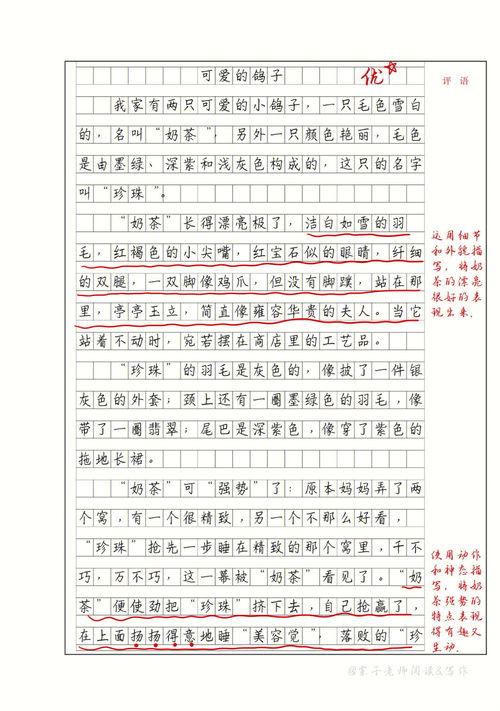 可爱的鸽子
优
评语
我家有两只可爱的小鸽子，一只毛色雪白
的，名叫“奶茶”，另外一只颜色艳丽，毛色
是由墨绿、深紫和浅灰色构成的，这只的名字
叫“珍珠”。
“奶茶”长得漂亮极了，洁白如雪的羽
毛，红褐色的小尖嘴，红宝石似的眼睛，纤细
的双腿，一双脚像鸡爪，但没有脚蹼，站在那
里，亭亭玉立，简直像雍容华贵的夫人。当它
站着不动时，宛若摆在商店里的工艺品。
运用细节
和外貌描
写，将奶
茶的漂亮
很好的表
现出来.
“珍珠”的羽毛是灰色的，像披了一件银
灰色的外套；颈上还有一圈墨绿色的羽毛，像
带了一圈翡翠；尾巴是深紫色，像穿了紫色的
拖地长裙。
“奶茶”可“强势”了：原本妈妈弄了两
个窝，有一个很精致，另一个不那么好看，
“珍珠”抢先一步睡在精致的那个窝里，千不
巧，万不巧，这一幕被“奶茶”看见了。“奶
茶”便使劲把“珍珠”挤下去，自己抢赢了，
在上面扬扬得意地睡“美容觉”；落败的“珍
使用动作
和神态描
写，将奶
茶强势的
特点表现
得有趣又
生动.
老师阅读&写作